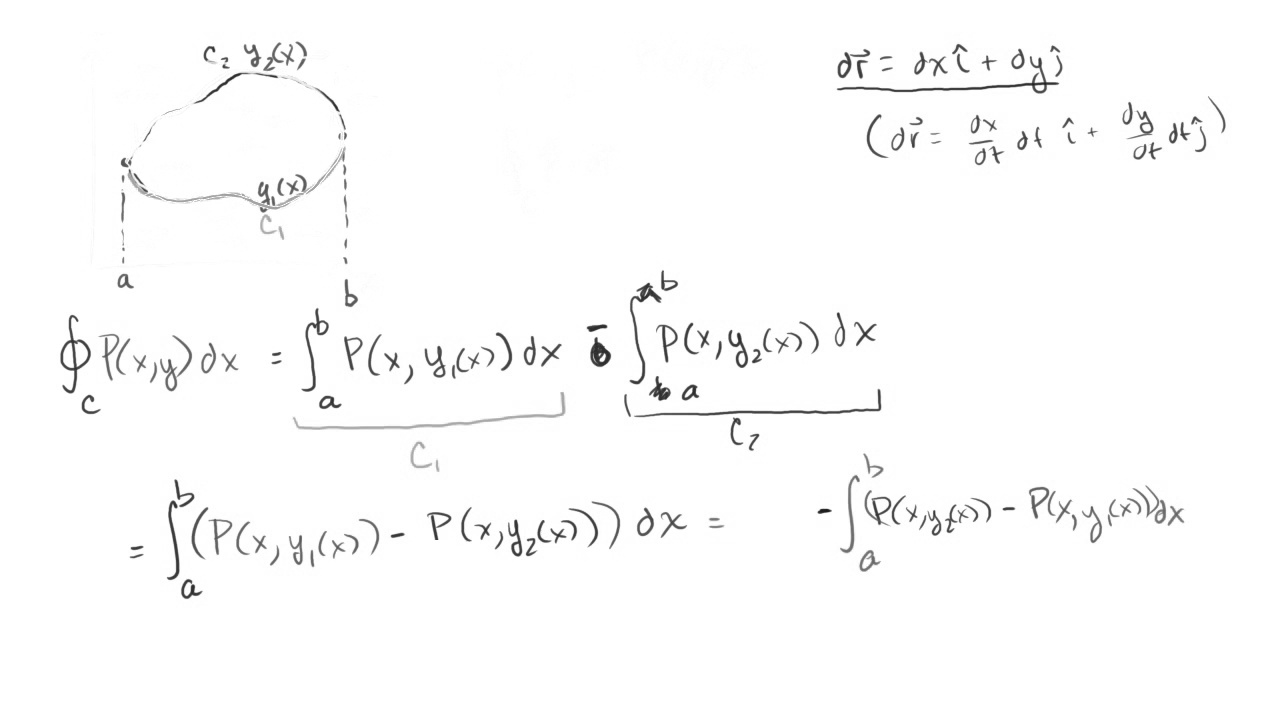 C₂ y₂(x)
y₁(x)
C₁
a b
dr⃗ = dx î + dy ĵ
(dr⃗ = dx/dt dt î + dy/dt dt ĵ)
∮_C P(x,y) dx = ∫_a^b P(x, y₁(x)) dx - ∫_a^b P(x, y₂(x)) dx
C₁ C₂
= ∫_a^b (P(x, y₁(x)) - P(x, y₂(x))) dx = - ∫_a^b (P(x, y₂(x)) - P(x, y₁(x))) dx